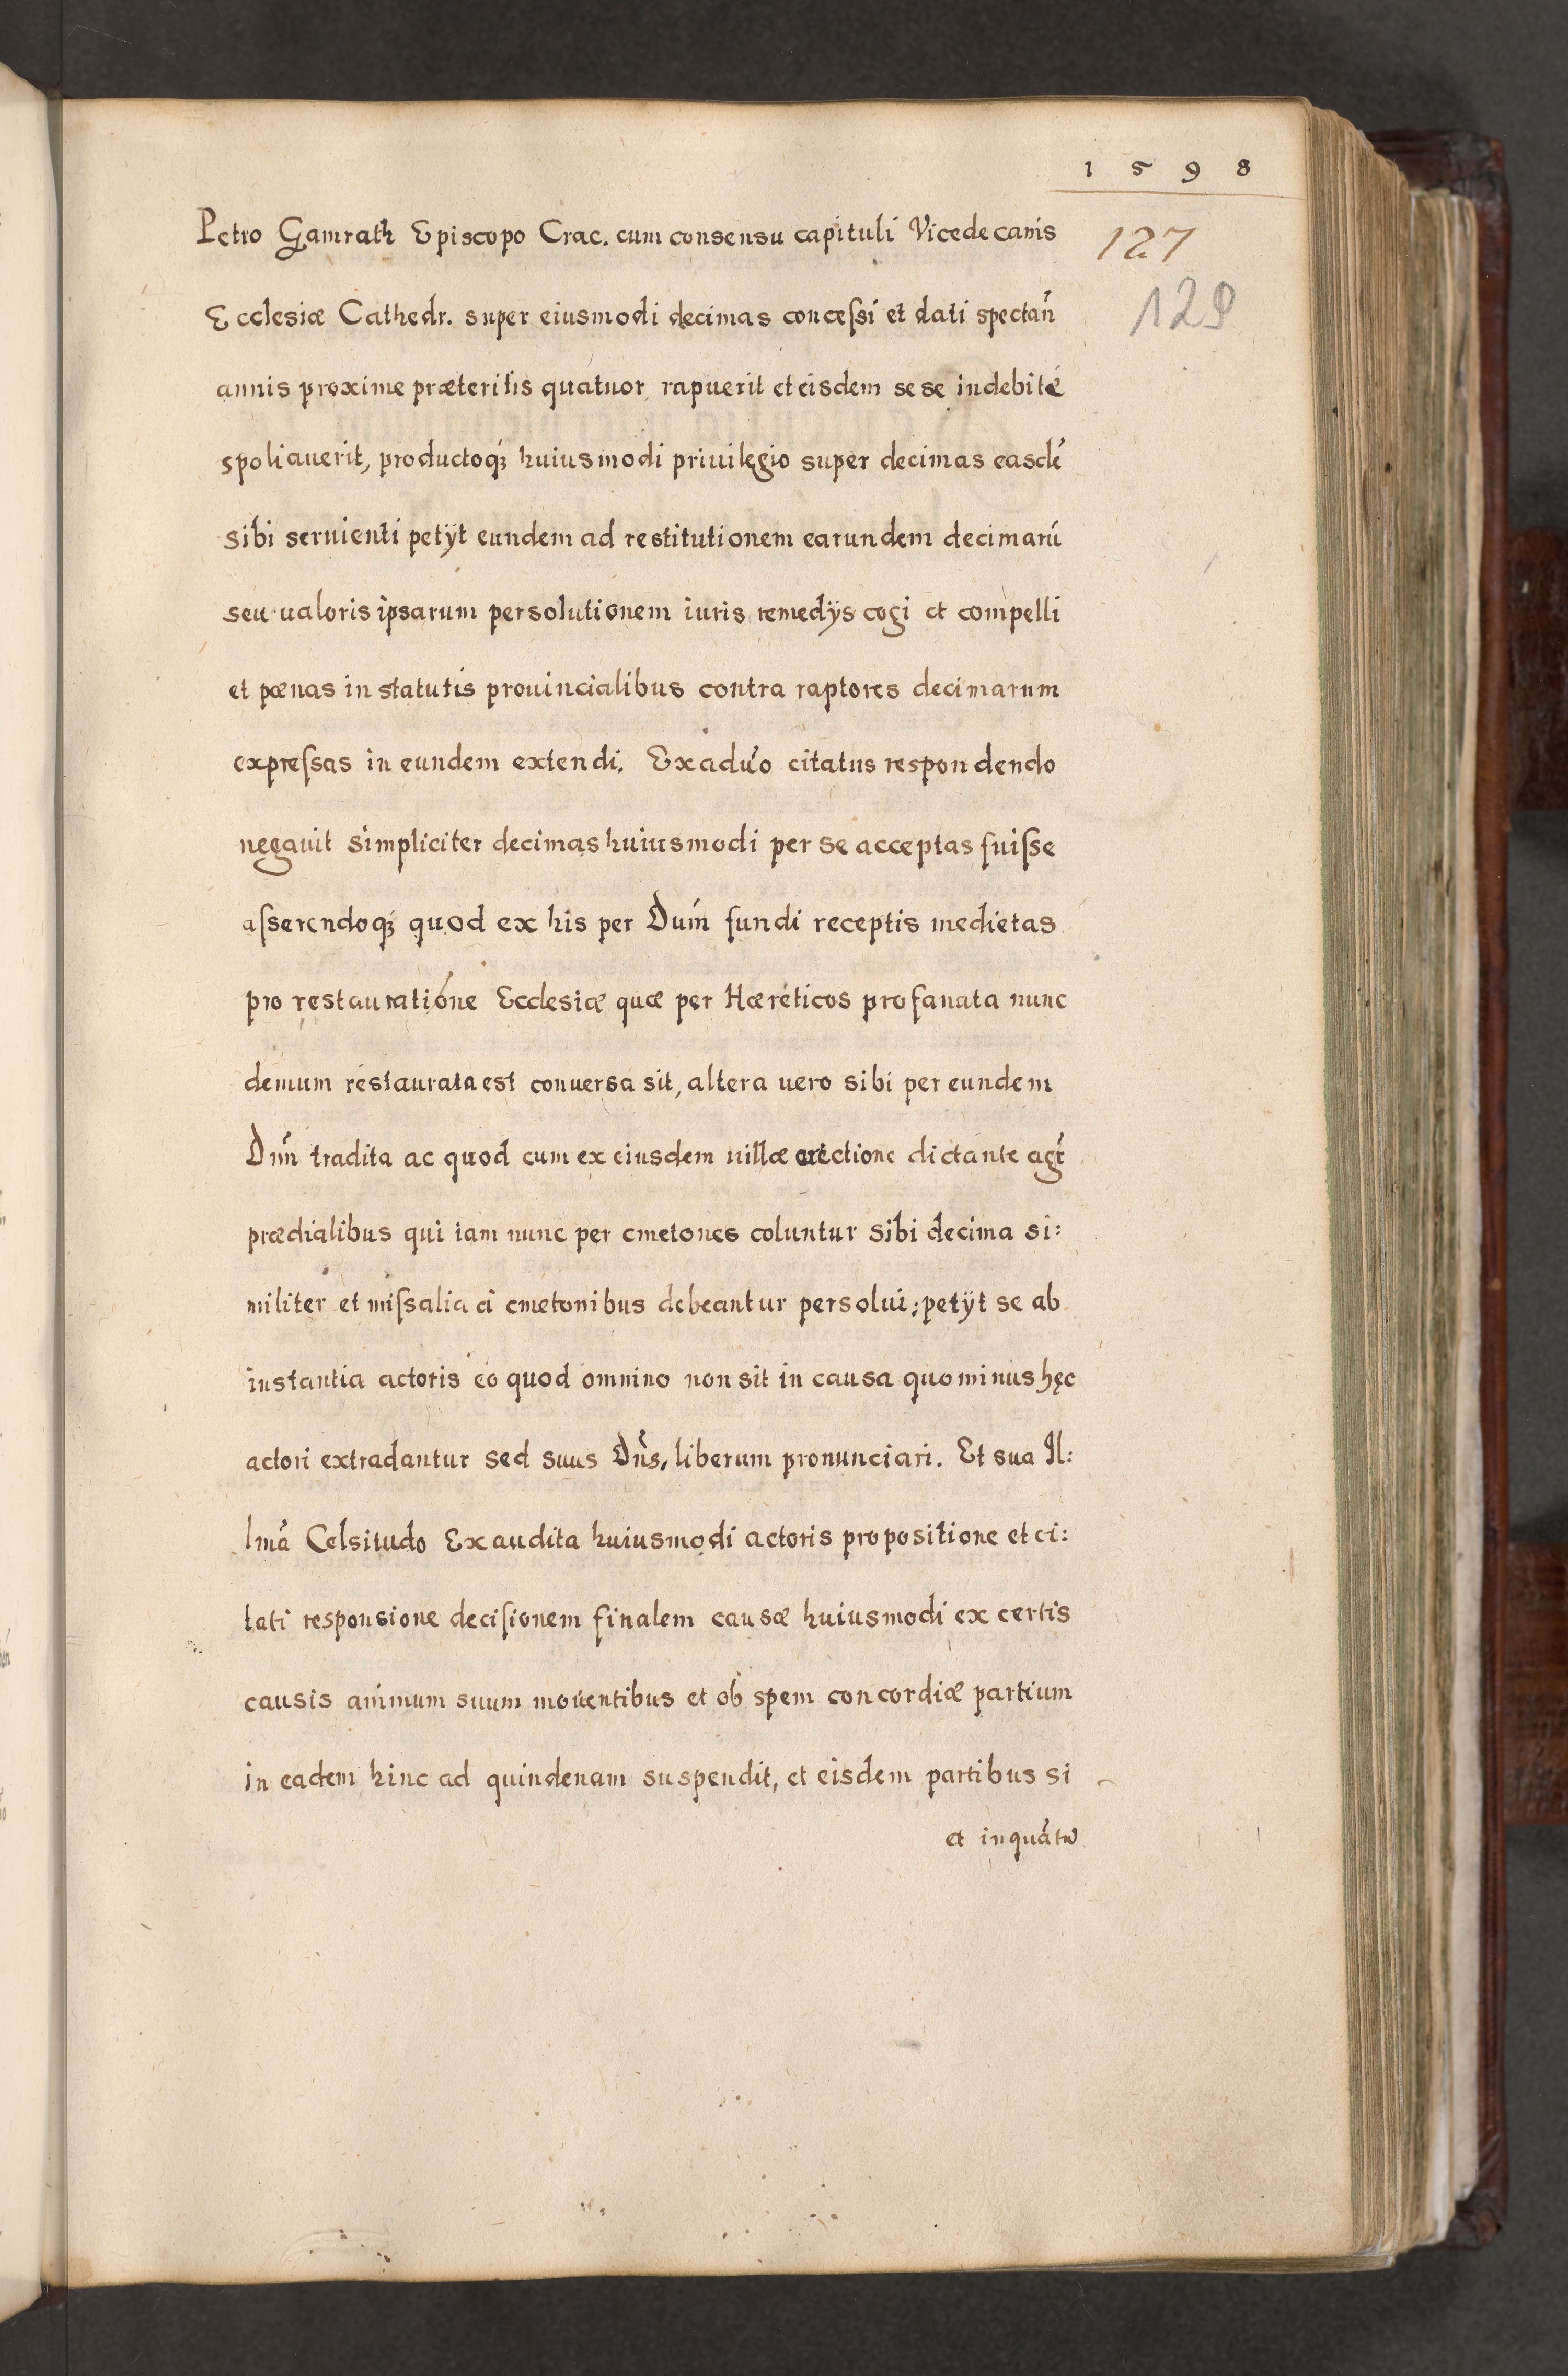 1 5 9 8
127
129
Petro Gamrath Episcopo Crac. cum consensu capituli Vicedecanis
Ecclesiæ Cathedr. super eiusmodi decimas conceſsi et dati spectan̄
annis proxime præteritis quatuor rapuerit et eisdem sese indebité
spoliauerit, productoqꝫ huiusmodi priuilegio super decimas easdē
sibi seruienti petÿt eundem ad restitutionem earundem decimarū
seu ualoris ipsarum persolutionem iuris remedÿs cogi et compelli
et pœnas in statutis prouincialibus contra raptores decimarum
expreſsas in eundem extendi. Ex aduo citatus respondendo
negauit simpliciter decimas huiusmodi per se acceptas fuiſse
aſserendoqꝫ quod ex his per Dum̄ fundi receptis medietas
pro restauratione Ecclesiæ quæ per Hæréticos profanata nunc
demum restaurata est conuersa sit, altera uero sibi per eundem
Dnn̄ tradita ac quod cum ex eiusdem uillæ erectione dictante agr̄
prædialibus qui iam nunc per cmetones coluntur sibi decima si:
militer et miſsalia á cmetonibus debeantur persolui; petÿt se ab
instantia actoris eo quod omnino non sit in causa quominus hęc
actori extradantur sed suus Dn̄s, liberum pronunciari. Et sua Il:
lmā Celsitudo Exaudita huiusmodi actoris propositione et ci:
tati responsione deciſionem finalem causæ huiusmodi ex certis
causis animum suum mouentibus et ob spem concordiæ partium
in eadem hinc ad quindenam suspendit, et eisdem partibus si
et inquātū